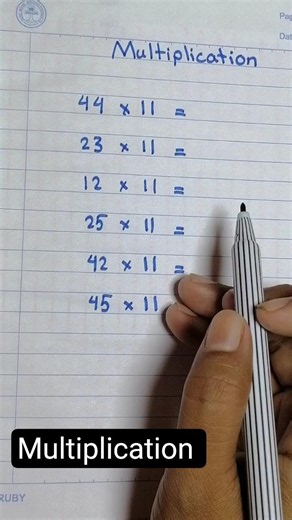 Pag
Dat
Multiplication
44 × 11 =
23 × 11 =
12 × 11 =
25 × 11 =
42 × 11 =
45 × 11
Multiplication
RUBY